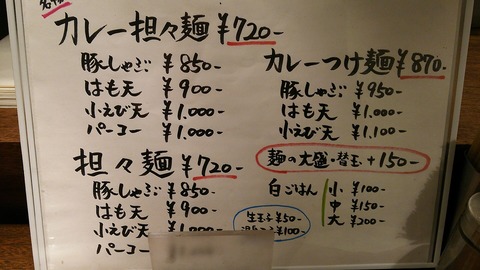 カレー担々麺 ¥720-
豚しゃぶ ¥850-
はも天 ¥900-
小えび天 ¥1.000-
パーコー ¥1.000-
担々麺 ¥720-
豚しゃぶ ¥850-
はも天 ¥900-
小えび天
パーコー
カレーつけ麺 ¥870-
豚しゃぶ ¥950-
はも天 ¥1.000-
小えび天 ¥1.100-
麺の大盛・替玉 +150-
白ごはん 小 ¥100-
中 ¥150-
大 ¥200-
生玉子 ¥50-
¥100-